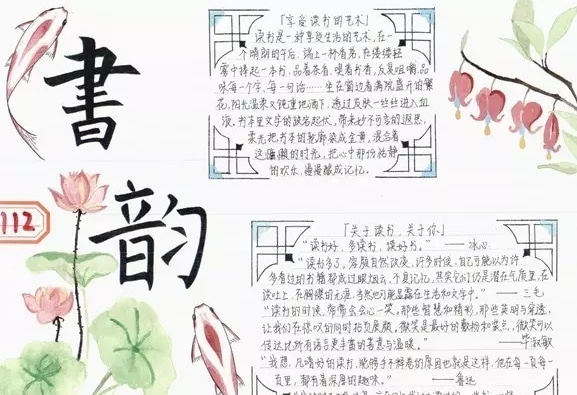 書韵
112
「享受读书的艺术」
读书是一种享受生活的艺术,在一
个晴朗的午后,端上一杯香茗,在缕缕轻
雾中捧起一本书,品着茶香,嗅着书香,反复咀嚼,品
味每一个字,每一句话……坐在窗边看满院盛开的繁
花,阳光温柔又健重地洒下,透过皮肤一丝丝进入血
液,书本里文字的跌宕起伏,带来妙不可言的遐思,
柔光把书本的轮廓染成金黄,混合着
这慵懒的时光,把心中那份恬静
的欢乐,慢慢酿成记忆。
「关于读书,关于你」
"读书好,多读书,读好书。" ——冰心
"读书多了,容颜自然改变,许多时候,自己可能以为许
多看过的书籍都成过眼烟云,不复记忆,其实它们仍是潜在气质里,在
谈吐上,在胸襟的无涯,当然也可能显露在生活和文字中。" ——三毛
"读书的时候,常常会会心一笑,那些智慧和精彩,那些英明与穿透,
让我们在惊叹的同时拍页展颜,微笑是最好的敷粉和装点,微笑可以
传达比所有语言更丰富的善意与温暖。" ——毕淑敏
"我想,凡嗜好的读书,能够手不释卷的原因也就是这样,他在每一页每一
页里,都有着深厚的趣味。" ——鲁迅